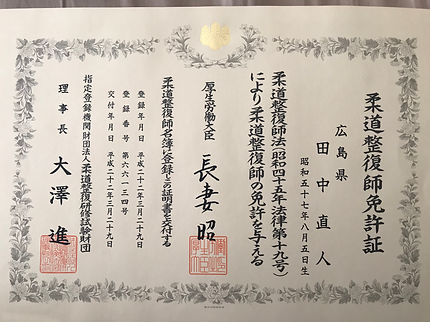 柔道整復師免許証
広島県
田中直人
昭和五十七年八月五日生
柔道整復師法(昭和四十五年法律第十九号)
により柔道整復師の免許を与える
厚生労働大臣 長妻昭
柔道整復師名簿に登録しこの証明書を交付する
登録年月日 平成二十二年三月二十九日
登録番号 第六六一三四号
交付年月日 平成二十二年三月二十九日
指定登録機関財団法人柔道整復研修試験財団
理事長 大澤進